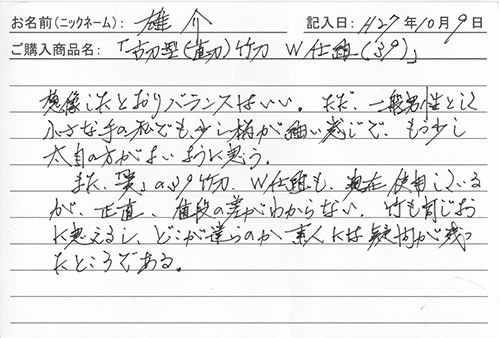 お名前(ニックネーム): 雄介 記入日: H27年10月9日
ご購入商品名: 「古刀型(直刀)竹刀 W仕組(39)」
想像したとおりバランスはいい。ただ、一般男性として
小さな手の私でも、少し柄が細い感じで、もう少し
太目の方がよいように思う。
また、「 」の39竹刀、W仕組も、現在使用している
が、正直、値段の差がわからない。竹も同じよう
に思えるし、どこが違うのか素人には疑問が残っ
たところである。